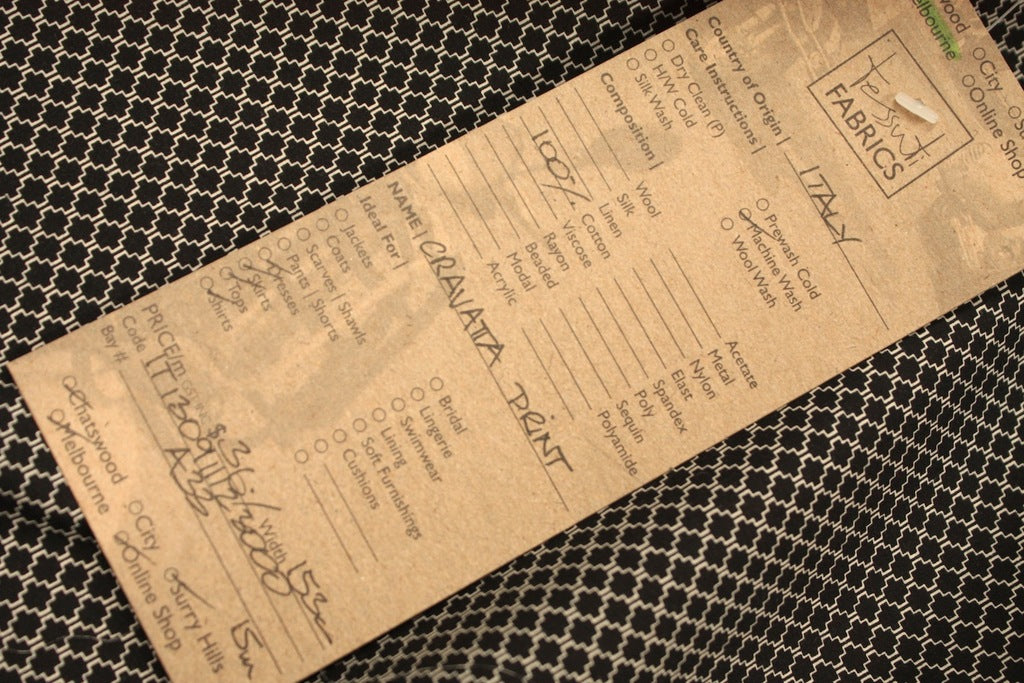 Tessuti
FABRICS
Country of Origin | ITALY
Care Instructions |
Dry Clean (P)
H/W Cold
Silk Wash
Prewash Cold
Machine Wash
Wool Wash
Composition |
Wool
Silk
Linen
100% Cotton
Viscose
Rayon
Beaded
Modal
Acrylic
Acetate
Metal
Nylon
Elast
Spandex
Poly
Sequin
Polyamide
NAME | CRAVATTA PRINT
Ideal For |
Jackets
Coats
Scarves | Shawls
Pants | Shorts
Dresses
Skirts
Tops
Shirts
Bridal
Lingerie
Swimwear
Lining
Soft Furnishings
Cushions
PRICE/m
Width 153cm
Code
Bay #
15m
Chatswood
City
Surry Hills
Melbourne
Online Shop
wood
City
elbourne
Online Shop